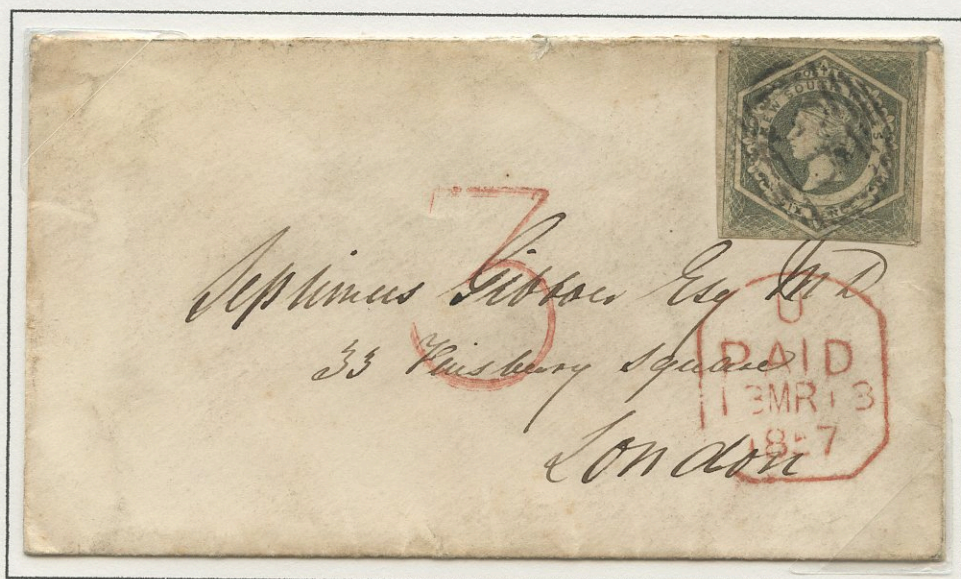 NEW SOUTH WALES
SIX
3
Septimus Gibbon Esq M D
33 Finsbury Square
London
U
PAID
13MR13
1857